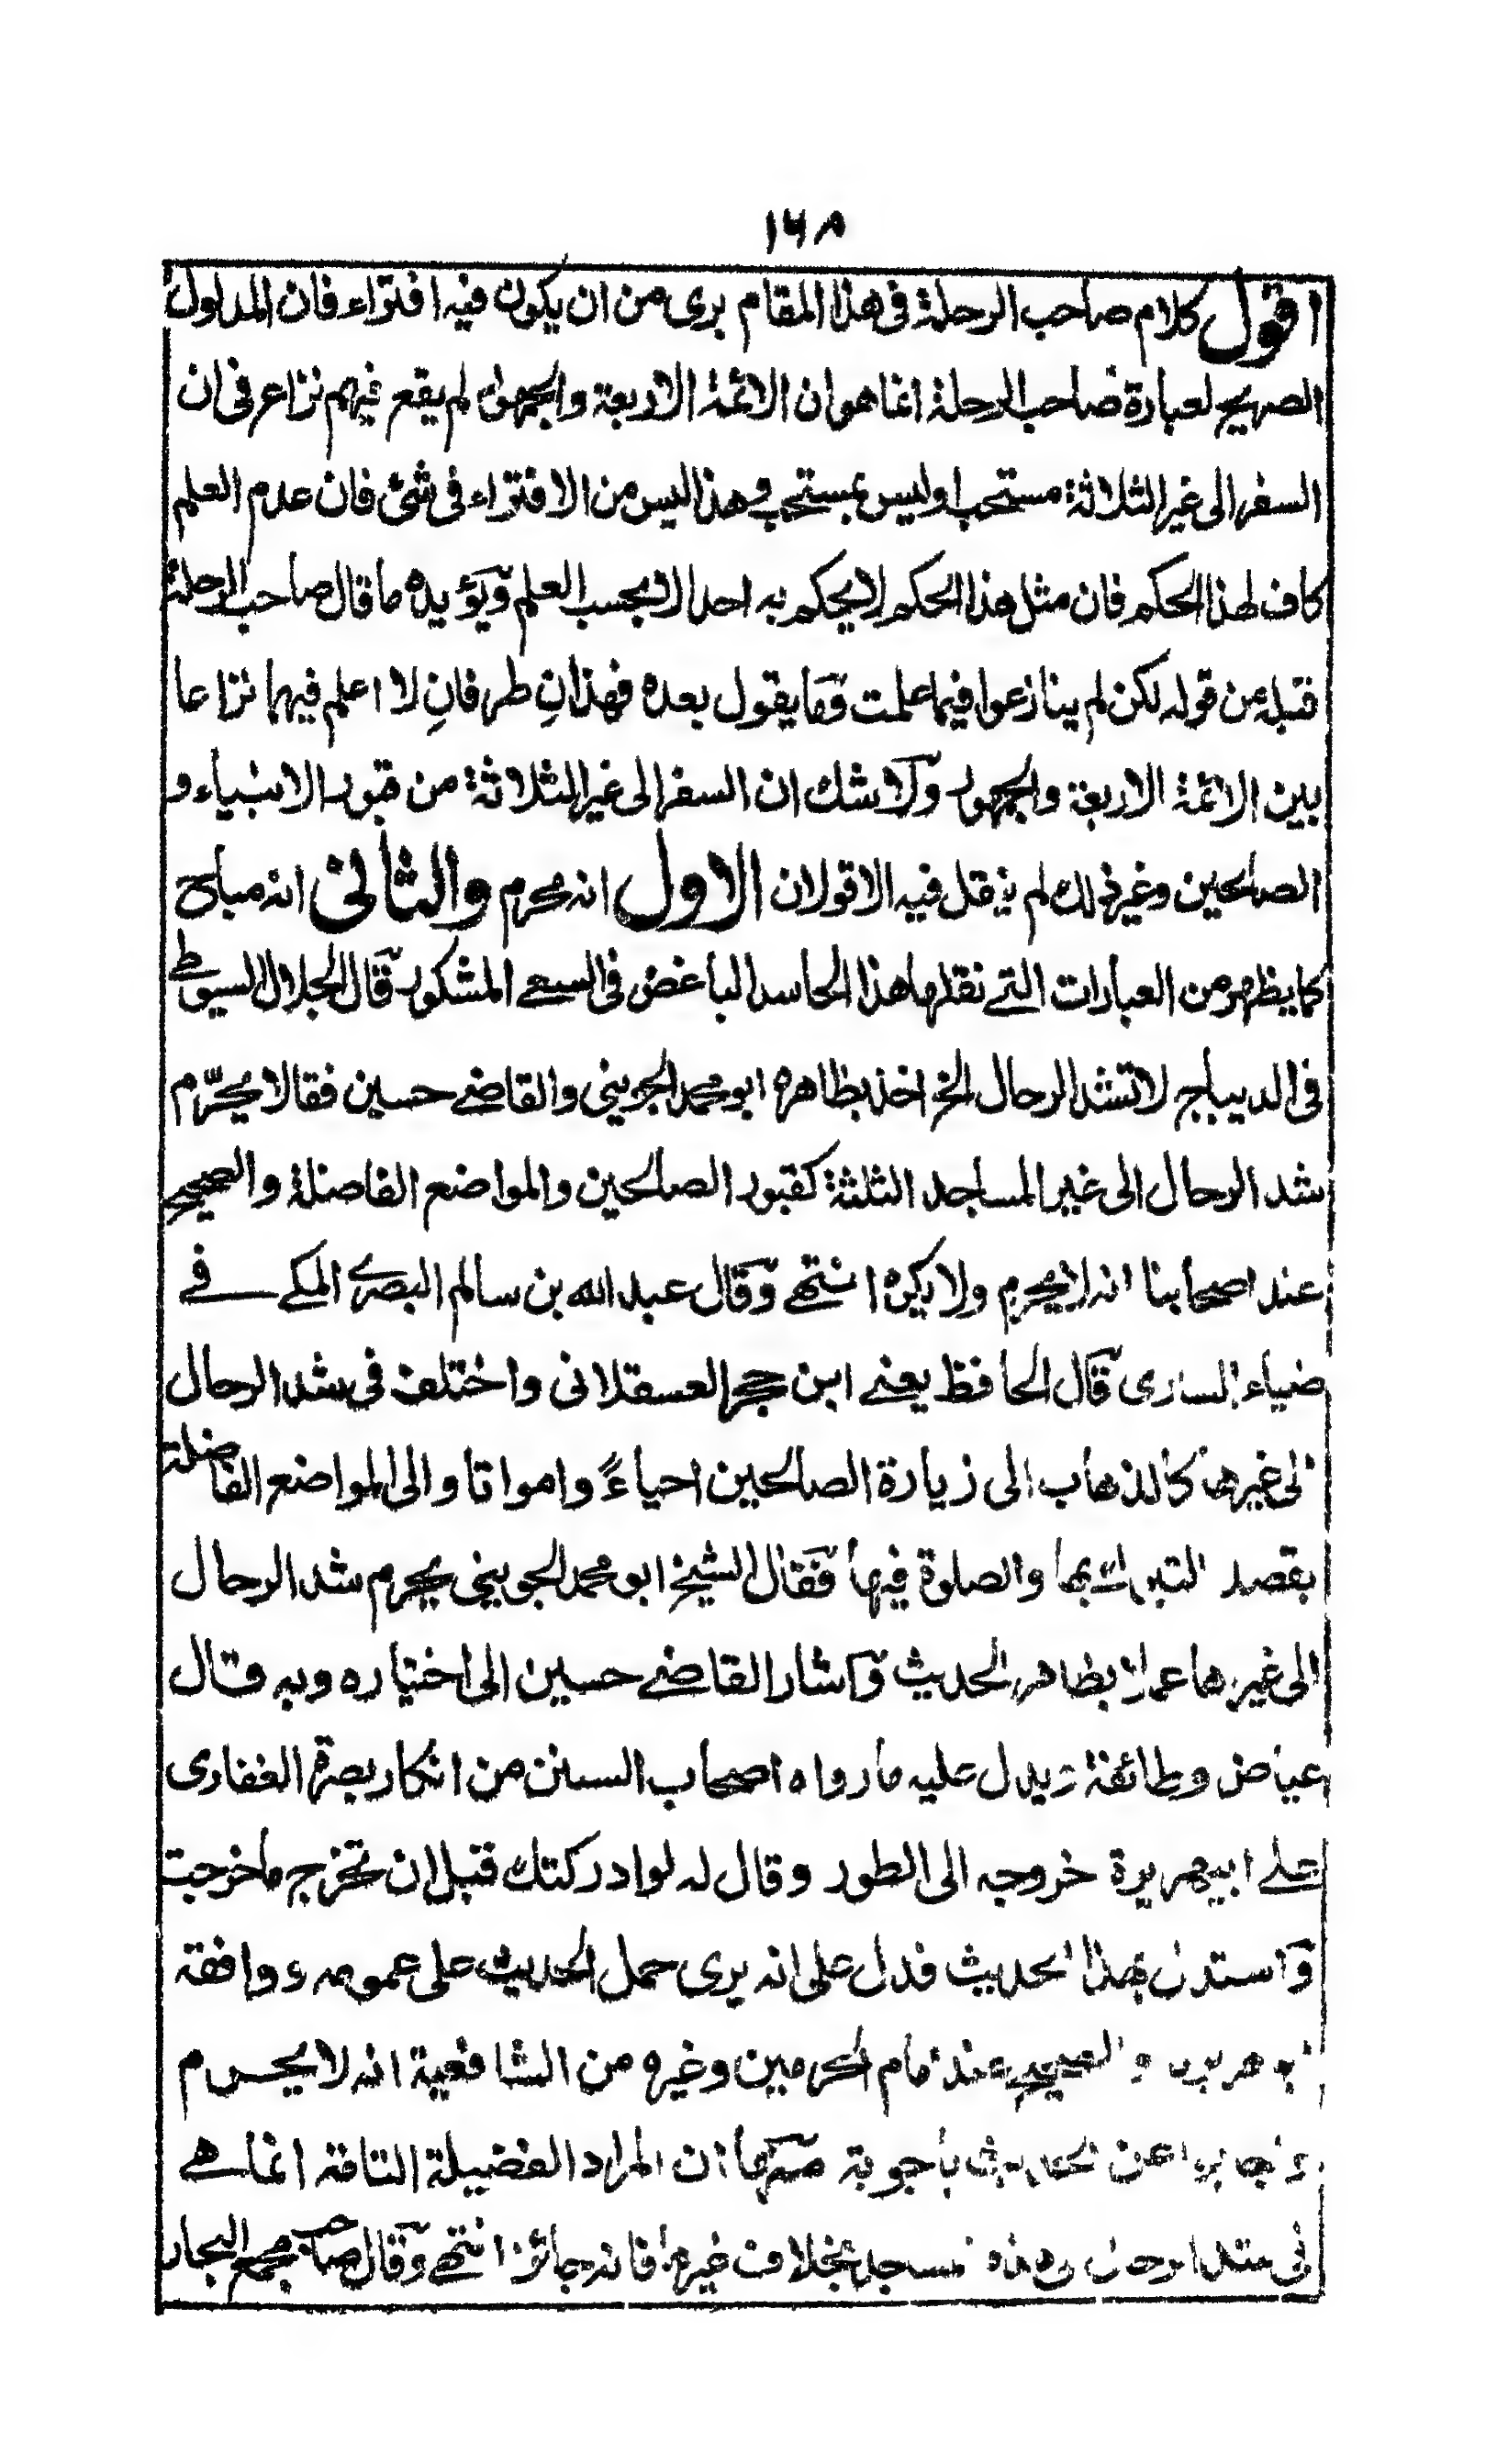 ١٦٨
اقول كلام صاحب الرحلة فى هذا المقام برى من ان يكون فيه افتراء فان المدلول
الصريح لعبارة صاحب الرحلة انما هو ان الائمة الاربعة والجمهور لم يقع فيهم نزاع فى ان
السفر الى غير الثلاثة مستحب او ليس بمستحب وهذا ليس من الافتراء فى شئ فان عدم العلم
كاف لهذا الحكم فان مثل هذا الحكم لا يحكم به احد الا بحسب العلم ويؤيده ما قال صاحب الرحلة
قبله من قوله لكن لم ينازعوا فيما علمت وما يقول بعده فهذانِ طرفانِ لا اعلم فيهما نزاعا
بين الائمة الاربعة والجمهور ولا شك ان السفر الى غير الثلاثة من قبور الانبياء و
الصالحين وغير ذلك لم ينقل فيه الا قولان الاول انه محرم والثانى انه مباح
كما يظهر من العبارات التے نقلها هذا الحاسد الباغض فى السعے المشكور قال الجلال السيوطے
فى الديباج لا تشد الرحال الخ اخذ بظاهره ابو محمد الجوينى والقاضے حسين فقالا يحرّم
شد الرحال الى غير المساجد الثلثة كقبور الصلحين والمواضع الفاضلة والصحيح
عند اصحابنا انه لا يحرم ولا يكره انتهے وقال عبد الله بن سالم البصرے المكے فے
ضياء السارى قال الحافظ يعنے ابن حجر العسقلانى واختلف فى شد الرحال
الى غيرها كالذهاب الى زيارة الصالحين احياءً وامواتا والى المواضع الفاضلة
بقصد التبرك بها والصلوة فيها فقال الشيخ ابو محمد الجوينى يحرم شد الرحال
الى غيرها عملا بظاهر الحديث واشار القاضے حسين الى اختياره وبه قال
عياض وطائفة ويدل عليه ما رواه اصحاب السنن من انكار بصرة الغفارى
علے ابيهريرة خروجه الى الطور وقال له لو ادركتك قبل ان تخرج ما خرجت
واستدل بهذا الحديث فدل على انه يرى حمل الحديث على عمومه ووافقه
ابو هريرة والصحيح عند امام الحرمين وغيره من الشافعية انه لا يحرم
واجابوا عن الحديث باجوبة منها ان المراد الفضيلة التامة انما هے
فى شد الرحال الى هذه المسجد بخلاف غيرها فانه جائز انتهے وقال صاحب مجمع البحار